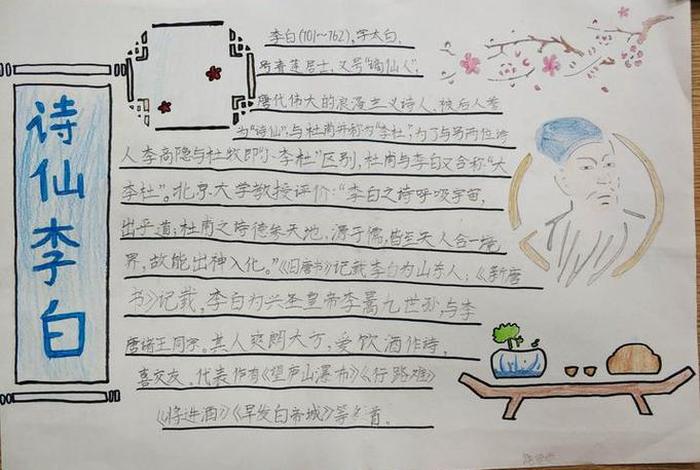 诗仙李白
李白(701~762),字太白,
号青莲居士,又号"谪仙人",
唐代伟大的浪漫主义诗人,被后人誉
为"诗仙",与杜甫并称为"李杜",为了与另两位诗
人李商隐与杜牧即"小李杜"区别,杜甫与李白又合称"大
李杜"。北京大学教授评价:"李白之诗呼吸宇宙,
出乎道;杜甫之诗德参天地,源于儒,皆至天人合一境
界,故能出神入化。"《旧唐书》记载李白为山东人;《新唐
书》记载,李白为兴圣皇帝李暠九世孙,与李
唐诸王同宗。其人爽朗大方,爱饮酒作诗,
喜交友。代表作有《望庐山瀑布》《行路难》
《将进酒》《早发白帝城》等 首。